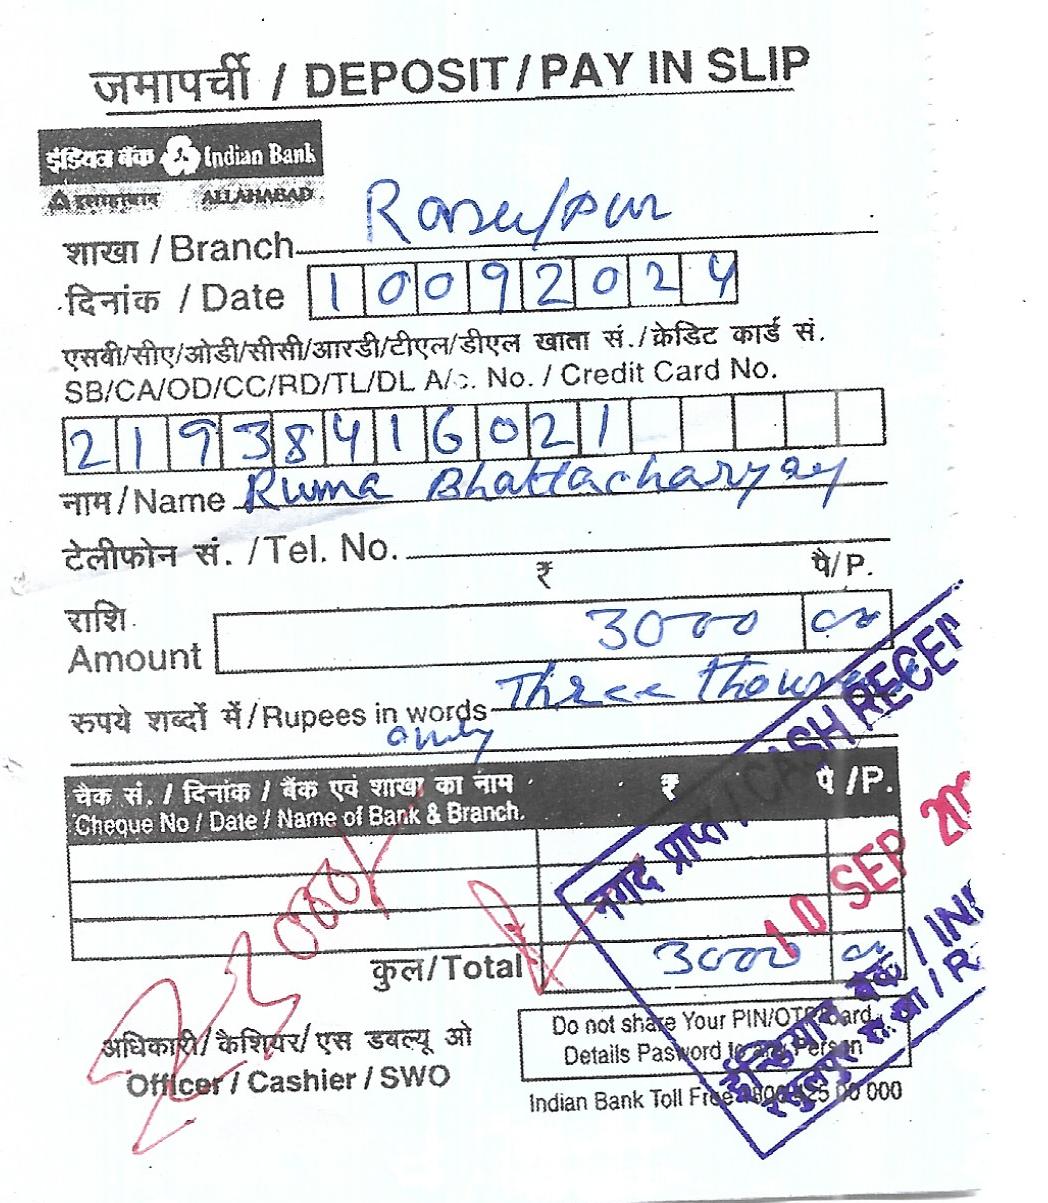 जमापर्ची / DEPOSIT / PAY IN SLIP
इंडियन बैंक Indian Bank
इलाहाबाद ALLAHABAD
शाखा / Branch Rasulpur
दिनांक / Date 10092024
एसबी/सीए/ओडी/सीसी/आरडी/टीएल/डीएल खाता सं./क्रेडिट कार्ड सं.
SB/CA/OD/CC/RD/TL/DL A/c. No. / Credit Card No.
21938416021
नाम/Name Ruma Bhattacharyay
टेलीफोन सं. /Tel. No.
₹ पै/P.
राशि
Amount 3000 00
रुपये शब्दों में/Rupees in words Three thousand
only
चेक सं. / दिनांक / बैंक एवं शाखा का नाम ₹ पै /P.
Cheque No / Date / Name of Bank & Branch.
नगद प्राप्त / CASH RECEI
10 SEP 202
3000/
कुल/Total 3000 00
इन्डियन बैंक / IND
रसुलपुर शाखा / R
अधिकारी/ कैशियर/ एस डबल्यू ओ
Officer / Cashier / SWO
Do not share Your PIN/OTP/Card
Details Pasword to any Person
Indian Bank Toll Free 1800 425 00 000